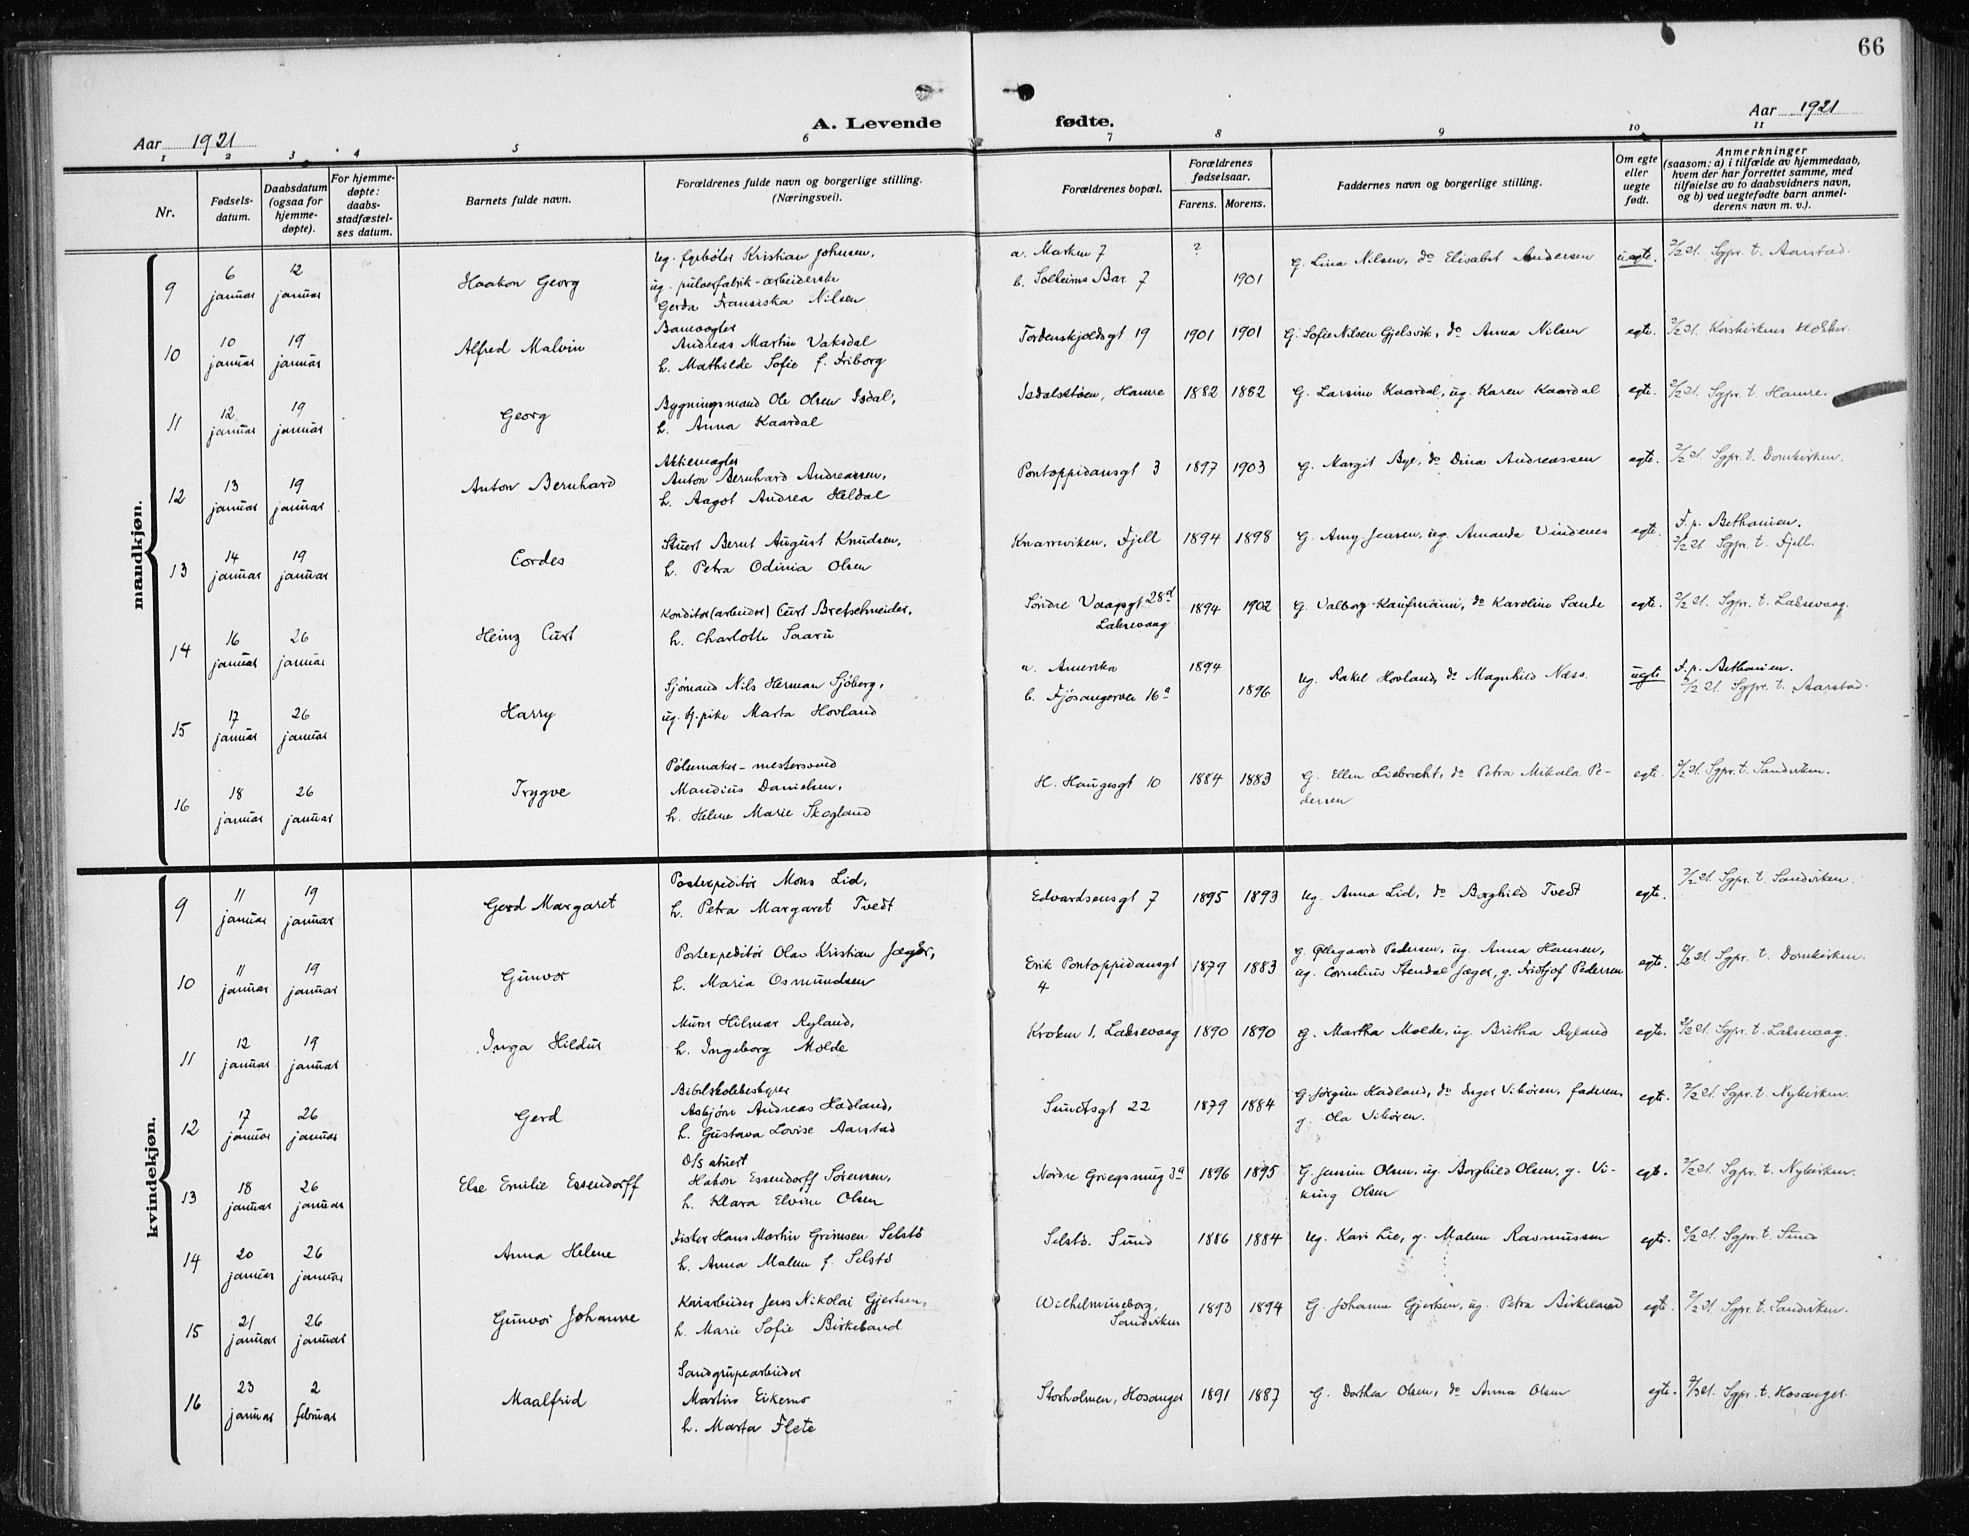 66
Aar 1921
A. Levende fødte.
Aar 1921
1 2 3 4 5 6 7 8 9 10 11
Nr.
Fødsels-
datum.
Daabsdatum
(ogsaa for
hjemme-
døpte).
For hjemme-
døpte:
daabs-
stadfæstel-
ses datum.
Barnets fulde navn.
Forældrenes fulde navn og borgerlige stilling.
(Næringsvei).
Forældrenes bopæl.
Forældrenes
fødselsaar.
Farens. Morens.
Faddernes navn og borgerlige stilling.
Om egte
eller
uegte
født.
Anmerkninger
(saasom: a) i tilfælde av hjemmedaab,
hvem der har forrettet samme, med
tilføielse av to daabsvidners navn,
og b) ved uegtefødte barn anmel-
derens navn m. v.).
mandkjøn.
9
6 januar
12 januar
Haakon Georg
ug. fyrbøter Kristian Johnsen,
ug. -arbeiderske
Gerda Fransiska Nilsen
a. Marken 7
b. Solheims Bar. 7
?
1901
G. Lina Nilsen, do Elisabet Andersen
uegte.
2/2 21. Sgpr. t. Aarstad.
10
10 januar
19 januar
Alfred Malvin
Banevogter
Andreas Martin Vaksdal
h. Mathilde Sofie f. Friborg
Tordenskjoldsgt 19
1901 1901
G. Sofie Nilsen Gjelsvik, do Anna Nilsen
egte.
2/2 21. Korskirkens
11
12 januar
19 januar
Georg
Bygningsmand Ole Olsen Isdal,
h. Anna Kaardal
Isdalstøen, Hamre
1882 1882
G. Larsine Kaardal, ug. Karen Kaardal
egte.
2/2 21. Sgpr. t. Hamre.
12
13 januar
19 januar
Anton Bernhard
Anton Bernhard Andreassen,
h. Aagot Andrea Heldal
Pontoppidansgt 3
1897 1903
G. Margit Bye, do Dina Andreassen
egte.
2/2 21. Sgpr. t. Domkirken.
13
14 januar
19 januar
Cordes
Stuert Bernt August Knudsen,
h. Petra Odinia Olsen
Knarreviken, Fjell
1894 1898
G. Amy Jensen, ug. Amanda Vindenes
egte.
F. p. Bethanien.
2/2 21. Sgpr. t. Fjell.
14
16 januar
26 januar
Heinz Curt
Konditor(arbeider) Curt Bretschneider,
h. Charlotte Saarü
Søndre Vaagsgt 28d
Laksevaag
1894 1902
G. Valborg Kaufmann, do Karoline Sande
egte.
2/2 21. Sgpr. t. Laksevaag.
15
17 januar
26 januar
Harry
Sjømand Nils Herman Sjøberg,
ug. tj. pike Marta Hovland
a. Amerika
b. Fjøsangervei 16a
1894
1896
ug. Rakel Hovland, do Magnhild Næss
uegte
F. p. Bethanien.
2/2 21. Sgpr. t. Aarstad.
16
18 januar
26 januar
Trygve
Pølsemaker- mestersvend
Mandius Danielsen,
h. Helene Marie Skogland
H. Haugesgt 10
1884 1883
G. Ellen Liebrecht, do Petra Mikala Pe-
dersen
egte.
2/2 21. Sgpr. t. Sandviken.
kvindekjøn.
9
11 januar
19 januar
Gerd Margaret
Postexpeditør Mons Lid,
h. Petra Margaret Tvedt
Edvardsensgt 7
1895 1893
ug. Anna Lid, do Borghild Tvedt
egte.
2/2 21. Sgpr. t. Sandviken.
10
11 januar
19 januar
Gunvor
Postexpeditør Olav Kristian Jæger,
h. Maria Osmundsen
Erik Pontoppidansgt
4
1879 1883
g. Øllegaard Pedersen, ug. Anna Hansen,
ug. Cornelius Stendal Jæger, g. Fridtjof Pedersen
egte.
2/2 21. Sgpr. t. Domkirken.
11
12 januar
19 januar
Inga Hildur
Murer Hilmar Ryland,
h. Ingeborg Molde
Kroken 1, Laksevaag
1890 1890
g. Martha Molde, ug. Britha Ryland
egte.
2/2 21. Sgpr. t. Laksevaag.
12
17 januar
26 januar
Gerd
Bibelskolebestyrer
Asbjørn Andreas Hadland,
h. Gustava Lovise Aarstad
Sundtsgt 22
1879 1884
G. Jørgine Hadland, do Inger Vikøren, faderen,
g. Ola Vikøren.
egte.
2/2 21. Sgpr. t. Nykirken.
13
18 januar
26 januar
Else Emilie Essendorff
D/S stuert
Hakon Essendorff Sørensen,
h. Klara Elvine Olsen
Nordre Griegsmug 3a
1896 1895
G. Jensine Olsen, ug. Borghild Olsen, g. Vi-
king Olsen
egte.
2/2 21. Sgpr. t. Nykirken.
14
20 januar
26 januar
Anna Helene
Fisker Hans Martin Grimsen Selstø
h. Anna Malene f. Selstø
Selstø. Sund
1886 1884
ug. Kari Lie, g. Malene Rasmussen
egte.
2/2 21. Sgpr. t. Sund
15
21 januar
26 januar
Gunvor Johanne
Kaiarbeider Jens Nikolai Gjertsen,
h. Marie Sofie Birkeland
Wilhelmineborg,
Sandviken
1893 1894
G. Johanne Gjertsen, ug. Petra Birkeland
egte.
2/2 21. Sgpr. t. Sandviken.
16
23 januar
2 februar
Maalfrid
Sandgrupearbeider
Martin Eikemo
h. Marta Flete
Storholmen, Hosanger
1891 1887
G. Dorthea Olsen, do Anna Olsen
egte.
Sgpr. t. Hosanger.